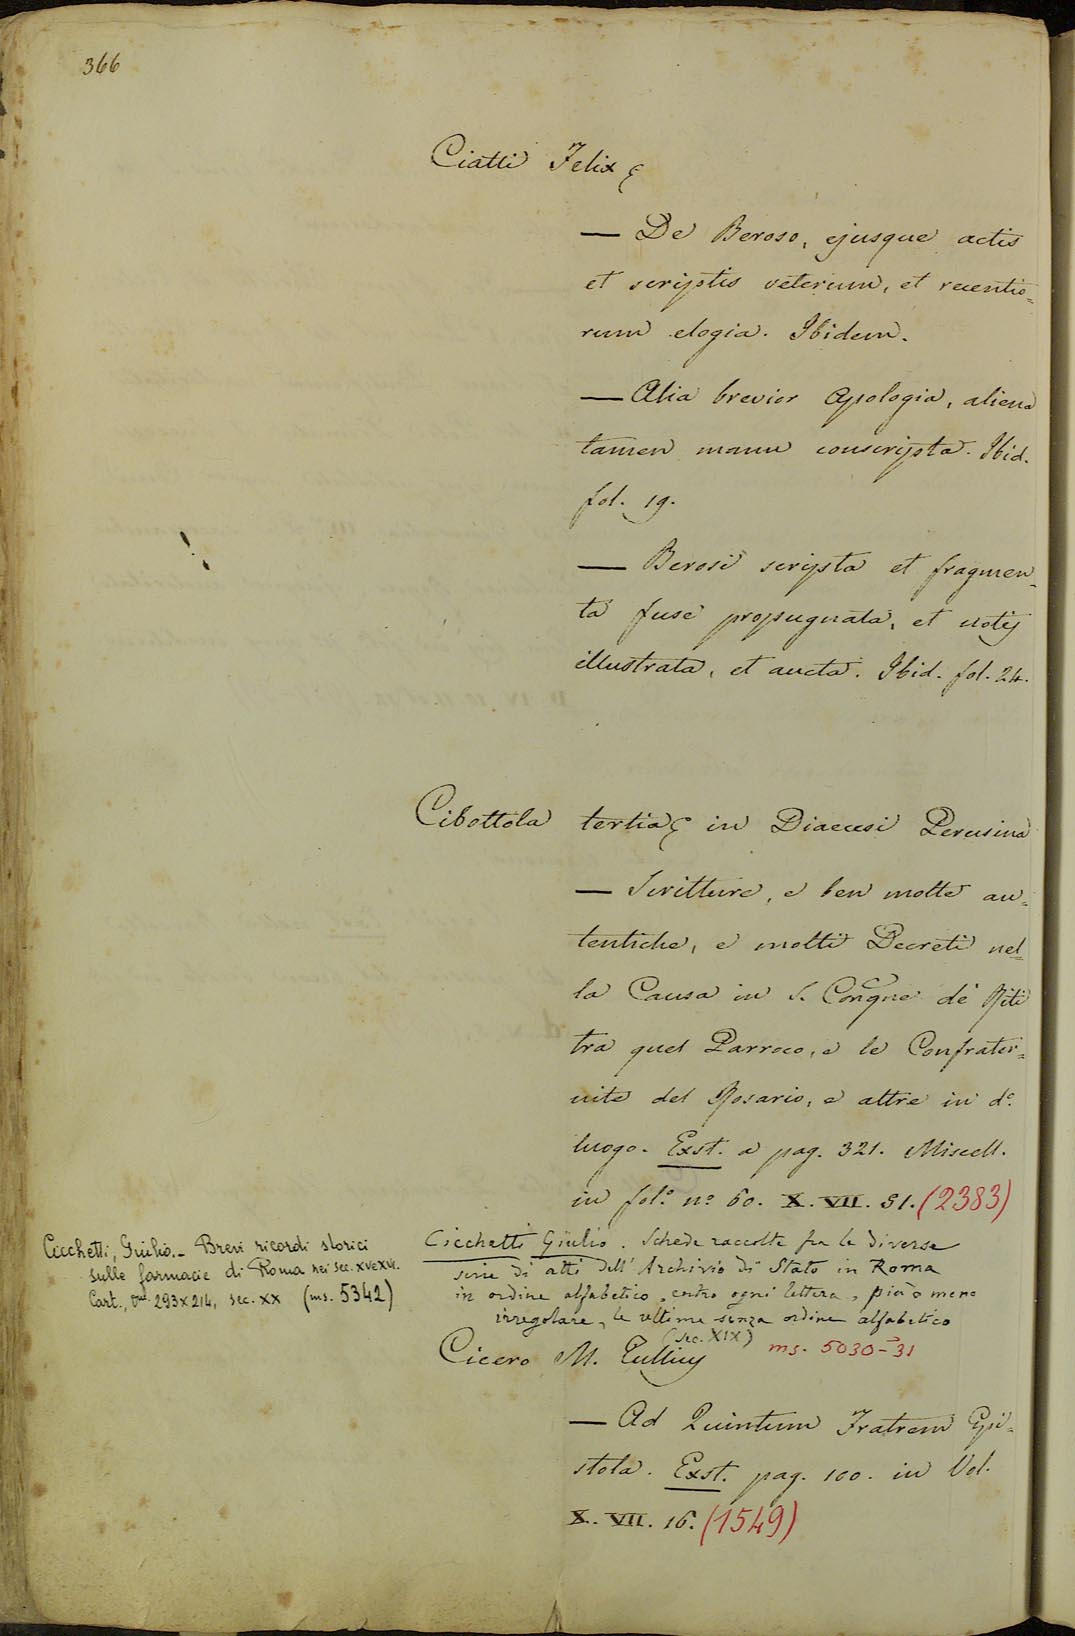 366
Ciatti Felix
— De Beroso, ejusque actis
et scriptis veterum, et recentio=
rum elogia. Ibidem.
— Alia brevior Apologia, aliena
tamen manu conscripta. Ibid.
fol. 19.
— Berosi scripta et fragmen=
ta fuse propugnata, et notis
illustrata, et aucta. Ibid. fol. 24.
Cibottola tertia in Diaecesi Perusina
— Scritture, e ben molte au=
tentiche, e molti Decreti nel=
la Causa in S. Congne de' Riti
tra quel Parroco, e le Confrater=
nite del Rosario, e altre in do.
luogo. Exst. a pag. 321. Miscell.
in folo. no 60. X. VII. 51. (2383)
Cicchetti, Giulio. – Brevi ricordi storici
sulle farmacie di Roma nei sec. XV e XVI.
Cart., 293x214, sec. XX (ms. 5342)
Cicchetti Giulio. Schede raccolte fra le diverse
serie di atti dell'Archivio di Stato in Roma
in ordine alfabetico, entro ogni lettera, più o meno
irregolare, le ultime senza ordine alfabetico
(sec. XIX) ms. 5030-31
Cicero M. Tullius
— Ad Quintum Fratrem Epi=
stola. Exst. pag. 100. in Vol.
X. VII. 16. (1549)